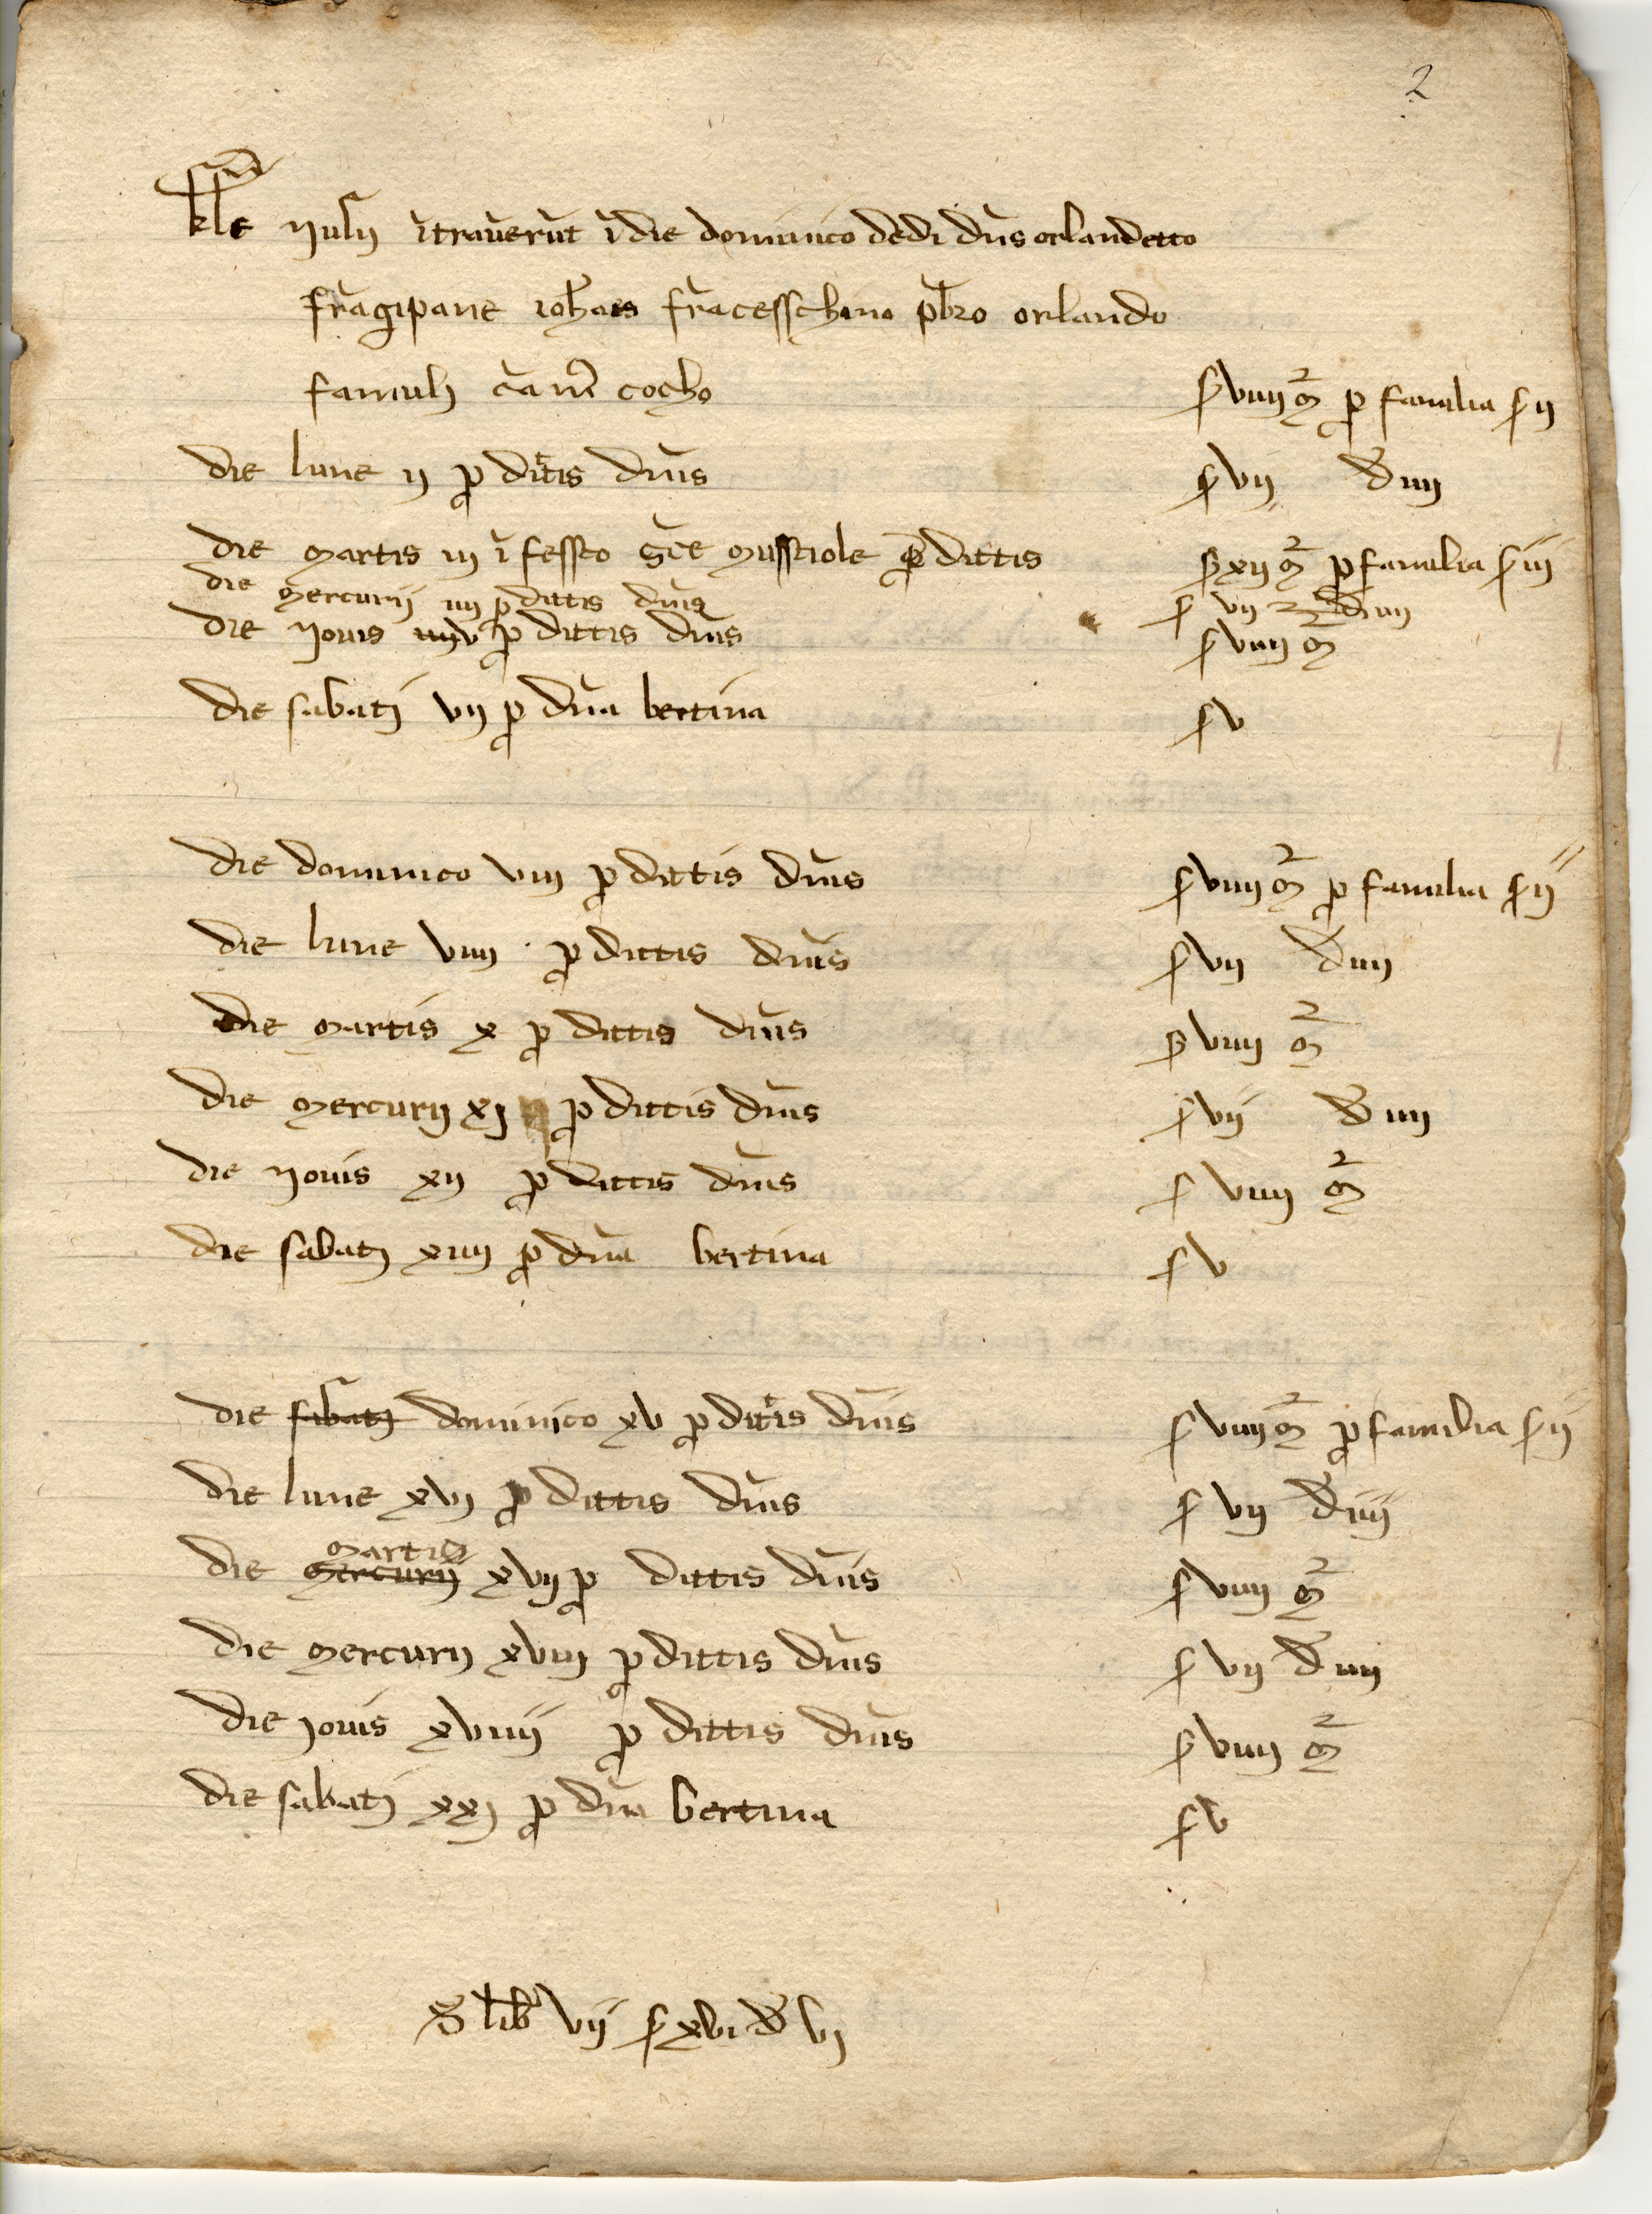 2
kle Julij ĩtrauerũt ĩ die dominico dedi dñs orlandetto
frãgipane ioħaes frãcesschino pƀro orlando
famuli cocho s viiij ꝫ² p familia s ij
die lune ij p dittis dñis s vij d iiij
die martis iij ĩ fessto sc̃e musstiole p dittis s xij ꝫ² p familia s iij
die mercurij iiij p dittis dñis s vij d iiij
die Jouis v p dittis dñis s viiij ꝫ²
die sabati vij p dña bertina s v
die dominico viij p dittis dñis s viiij ꝫ² p familia s ij
die lune viiij p dittis dñis s vij d iiij
die martis x p dittis dñis s viiij ꝫ²
die mercurij xj p dittis dñis s vij d iiij
die Jouis xij p dittis dñis s viiij ꝫ²
die sabati xiiij p dña bertina s v
die sabati dominico xv p dittis dñis s viiij ꝫ² p familia s ij
die lune xvj p dittis dñis s vij d iiij
die mercurij martis xvij p dittis dñis s viiij ꝫ²
die mercurij xviij p dittis dñis s vij d iiij
die Jouis xviiij p dittis dñis s viiij ꝫ²
die sabati xxj p dña bertina s v
S lib vij s xvi d vj